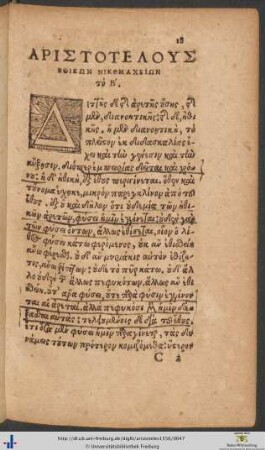 18
ΑΡΙΣΤΟΤΕΛΟΥΣ
ΗΘΙΚΩΝ ΝΙΚΟΜΑΧΕΙΩΝ
τὸ Β΄.
Διττῆς δὲ τῆς ἀρετῆς οὔσης, τῆς
μὲν, διανοητικῆς· τῆς δὲ, ἠθι-
κῆς, ἡ μὲν διανοητικὴ, τὸ
πλεῖον ἐκ διδασκαλίας
ἔχει καὶ τὴν γένεσιν καὶ τὴν
αὔξησιν, διόπερ ἐμπειρίας δεῖται καὶ χρό-
νου· ἡ δ᾽ ἠθικὴ, ἐξ ἔθους περιγίνεται. ὅθεν καὶ
τοὔνομα ἔσχηκε, μικρὸν παρεγκλίνον ἀπὸ τοῦ ἔθους.
ἐξ οὗ καὶ δῆλον ὅτι οὐδεμία τῶν ἠθι-
κῶν ἀρετῶν, φύσει ἡμῖν ἐγγίνεται· οὐθὲν γὰρ
τῶν φύσει ὄντων, ἄλλως ἐθίζεται, οἷον ὁ λί-
θος φύσει κάτω φερόμενος, οὐκ ἂν ἐθισθείη
ἄνω φέρεσθαι, οὐδ᾽ ἂν μυριάκις αὐτὸν ἐθίζῃ
τις, ἄνω ῥίπτων· οὐδὲ τὸ πῦρ κάτω, οὐδ᾽ ἄλ-
λο οὐδὲν τῶν ἄλλως πεφυκότων, ἄλλως ἂν ἐθι-
σθείη. οὔτ᾽ ἄρα φύσει, οὔτε παρὰ φύσιν ἐγγίνον-
ται αἱ ἀρεταὶ. ἀλλὰ πεφυκόσι μὲν ἡμῖν δέ-
ξασθαι αὐτάς· τελειουμένοις δὲ διὰ τοῦ ἔθους.
ἔτι ὅσα μὲν φύσει ἡμῖν παραγίνεται, τὰς δυ-
νάμεις τούτων πρότερον κομιζόμεθα· ὕστερον
C 2
http://dl.ub.uni-freiburg.de/diglit/aristoteles1556/0047
© Universitätsbibliothek Freiburg